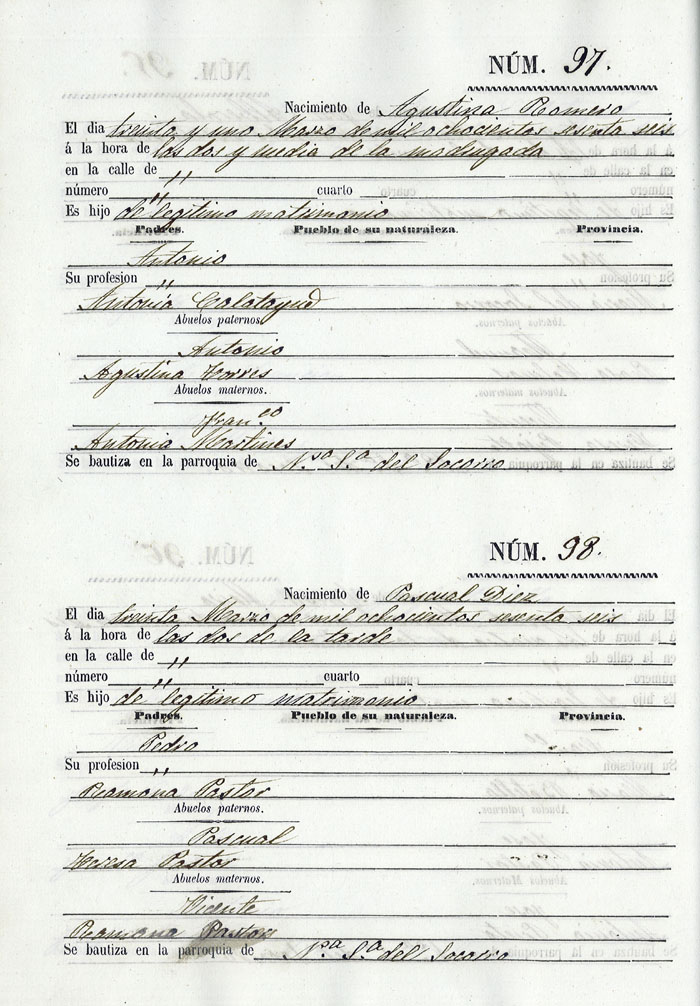 NÚM. 97.
Nacimiento de Agustina Romero
El dia treinta y uno Marzo de mil ochocientos sesenta seis
á la hora de las dos y media de la madrugada
en la calle de "
número " cuarto
Es hijo de legitimo matrimonio
Padres. Pueblo de su naturaleza. Provincia.
Antonio
Su profesion "
Antonia Calatayud
Abuelos paternos.
Antonio
Agustina Torres
Abuelos maternos.
Fran.co
Antonia Martines
Se bautiza en la parroquia de N.sa S.a del Socorro
NÚM. 98.
Nacimiento de Pascual Diez
El dia treinta Marzo de mil ochocientos sesenta seis
á la hora de las dos de la tarde
en la calle de "
número " cuarto
Es hijo de legitimo matrimonio
Padres. Pueblo de su naturaleza. Provincia.
Pedro
Su profesion "
Ramona Pastor
Abuelos paternos.
Pascual
Teresa Pastor
Abuelos maternos.
Vicente
Ramona Pastor
Se bautiza en la parroquia de N.a S.a del Socorro